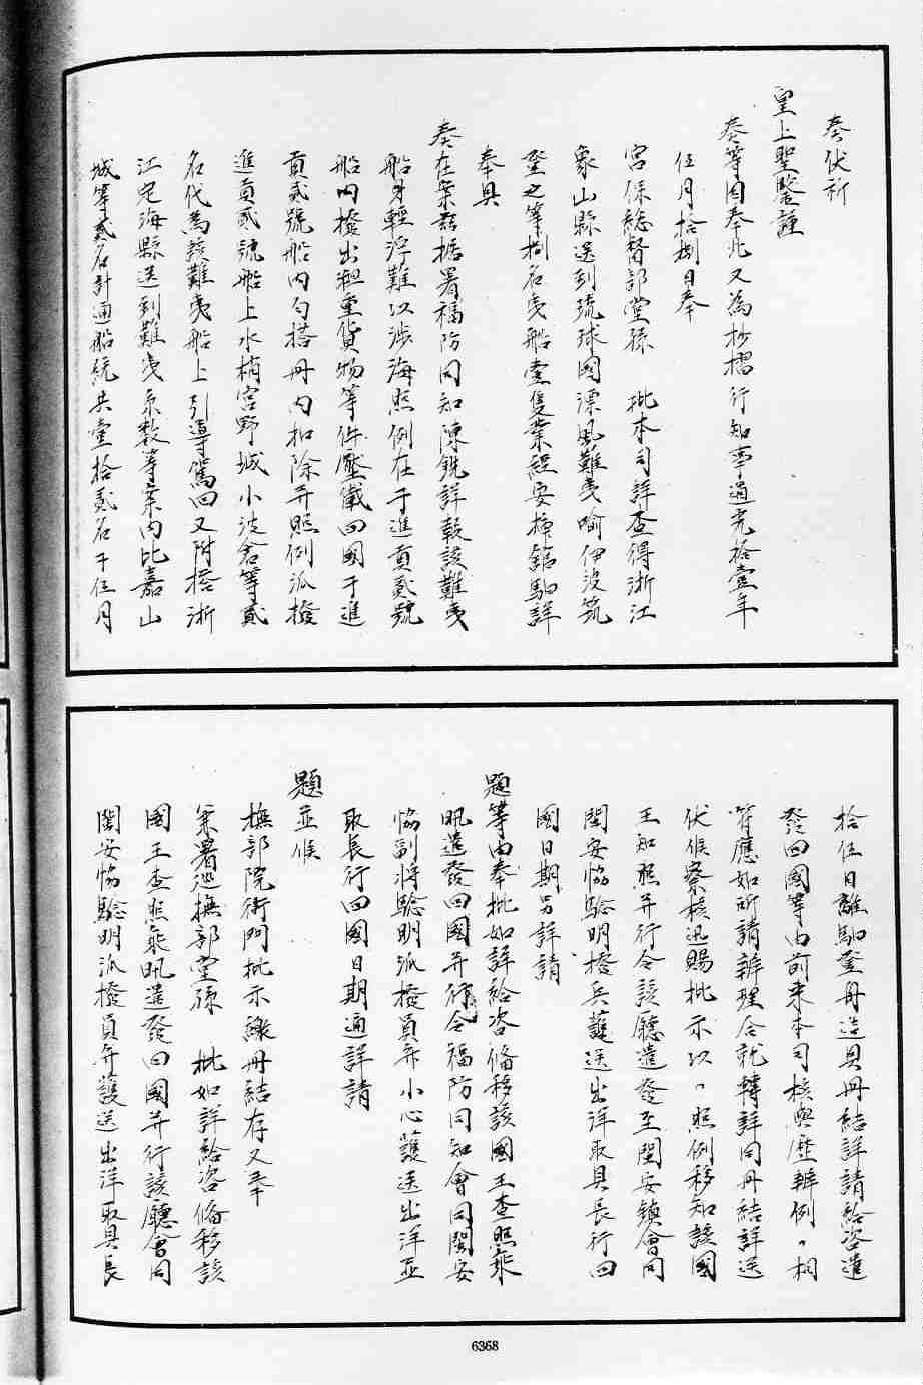 奏伏祈
皇上聖鑒謹
奏等因奉此又為抄摺行知事道光拾壹年
伍月拾捌日奉
宮保總督部堂孫 批本司詳查得浙江
象山縣送到琉球國漂風難夷喻伊波筑
登之等捌名夷船壹隻業經安揷館馹詳
奉具
奏在案茲據署福防同知陳銑詳報該難夷
船身輕浮難以涉海照例在于進貢貳號
船內撥出粗重貨物等件壓儎回國于進
貢貳號船內勻搭冊內扣除并照例派撥
進貢貳號船上水梢宮野城小波倉等貳
名代為該難夷船上引導駕回又附搭浙
江定海縣送到難夷京數等案內比嘉山
城等貳名計通船統共壹拾貳名于伍月
拾伍日離馹登舟造具冊結詳請給咨遣
發回國等由前来本司核與歷辦例、相
符應如所請辦理合就轉詳同冊結詳送
伏候察核迅賜批示以、照例移知該國
王知照并行令該廳遣發至閩安鎮會同
閩安協驗明撥兵護送出洋取具長行回
國日期另詳請
題等由奉批如詳給咨偹移該國王查照乘
帆遣發回國并行令福防同知會同閩安
恊副將驗明派撥員弁小心護送出洋並
取長行回國日期通詳請
題並候
撫部院衙門批示繳冊結存又奉
兼署巡撫部堂孫 批如詳給咨偹移該
國王查照乘帆遣發回國并行該廳會同
閩安恊驗明派撥員弁護送出洋取具長
6368